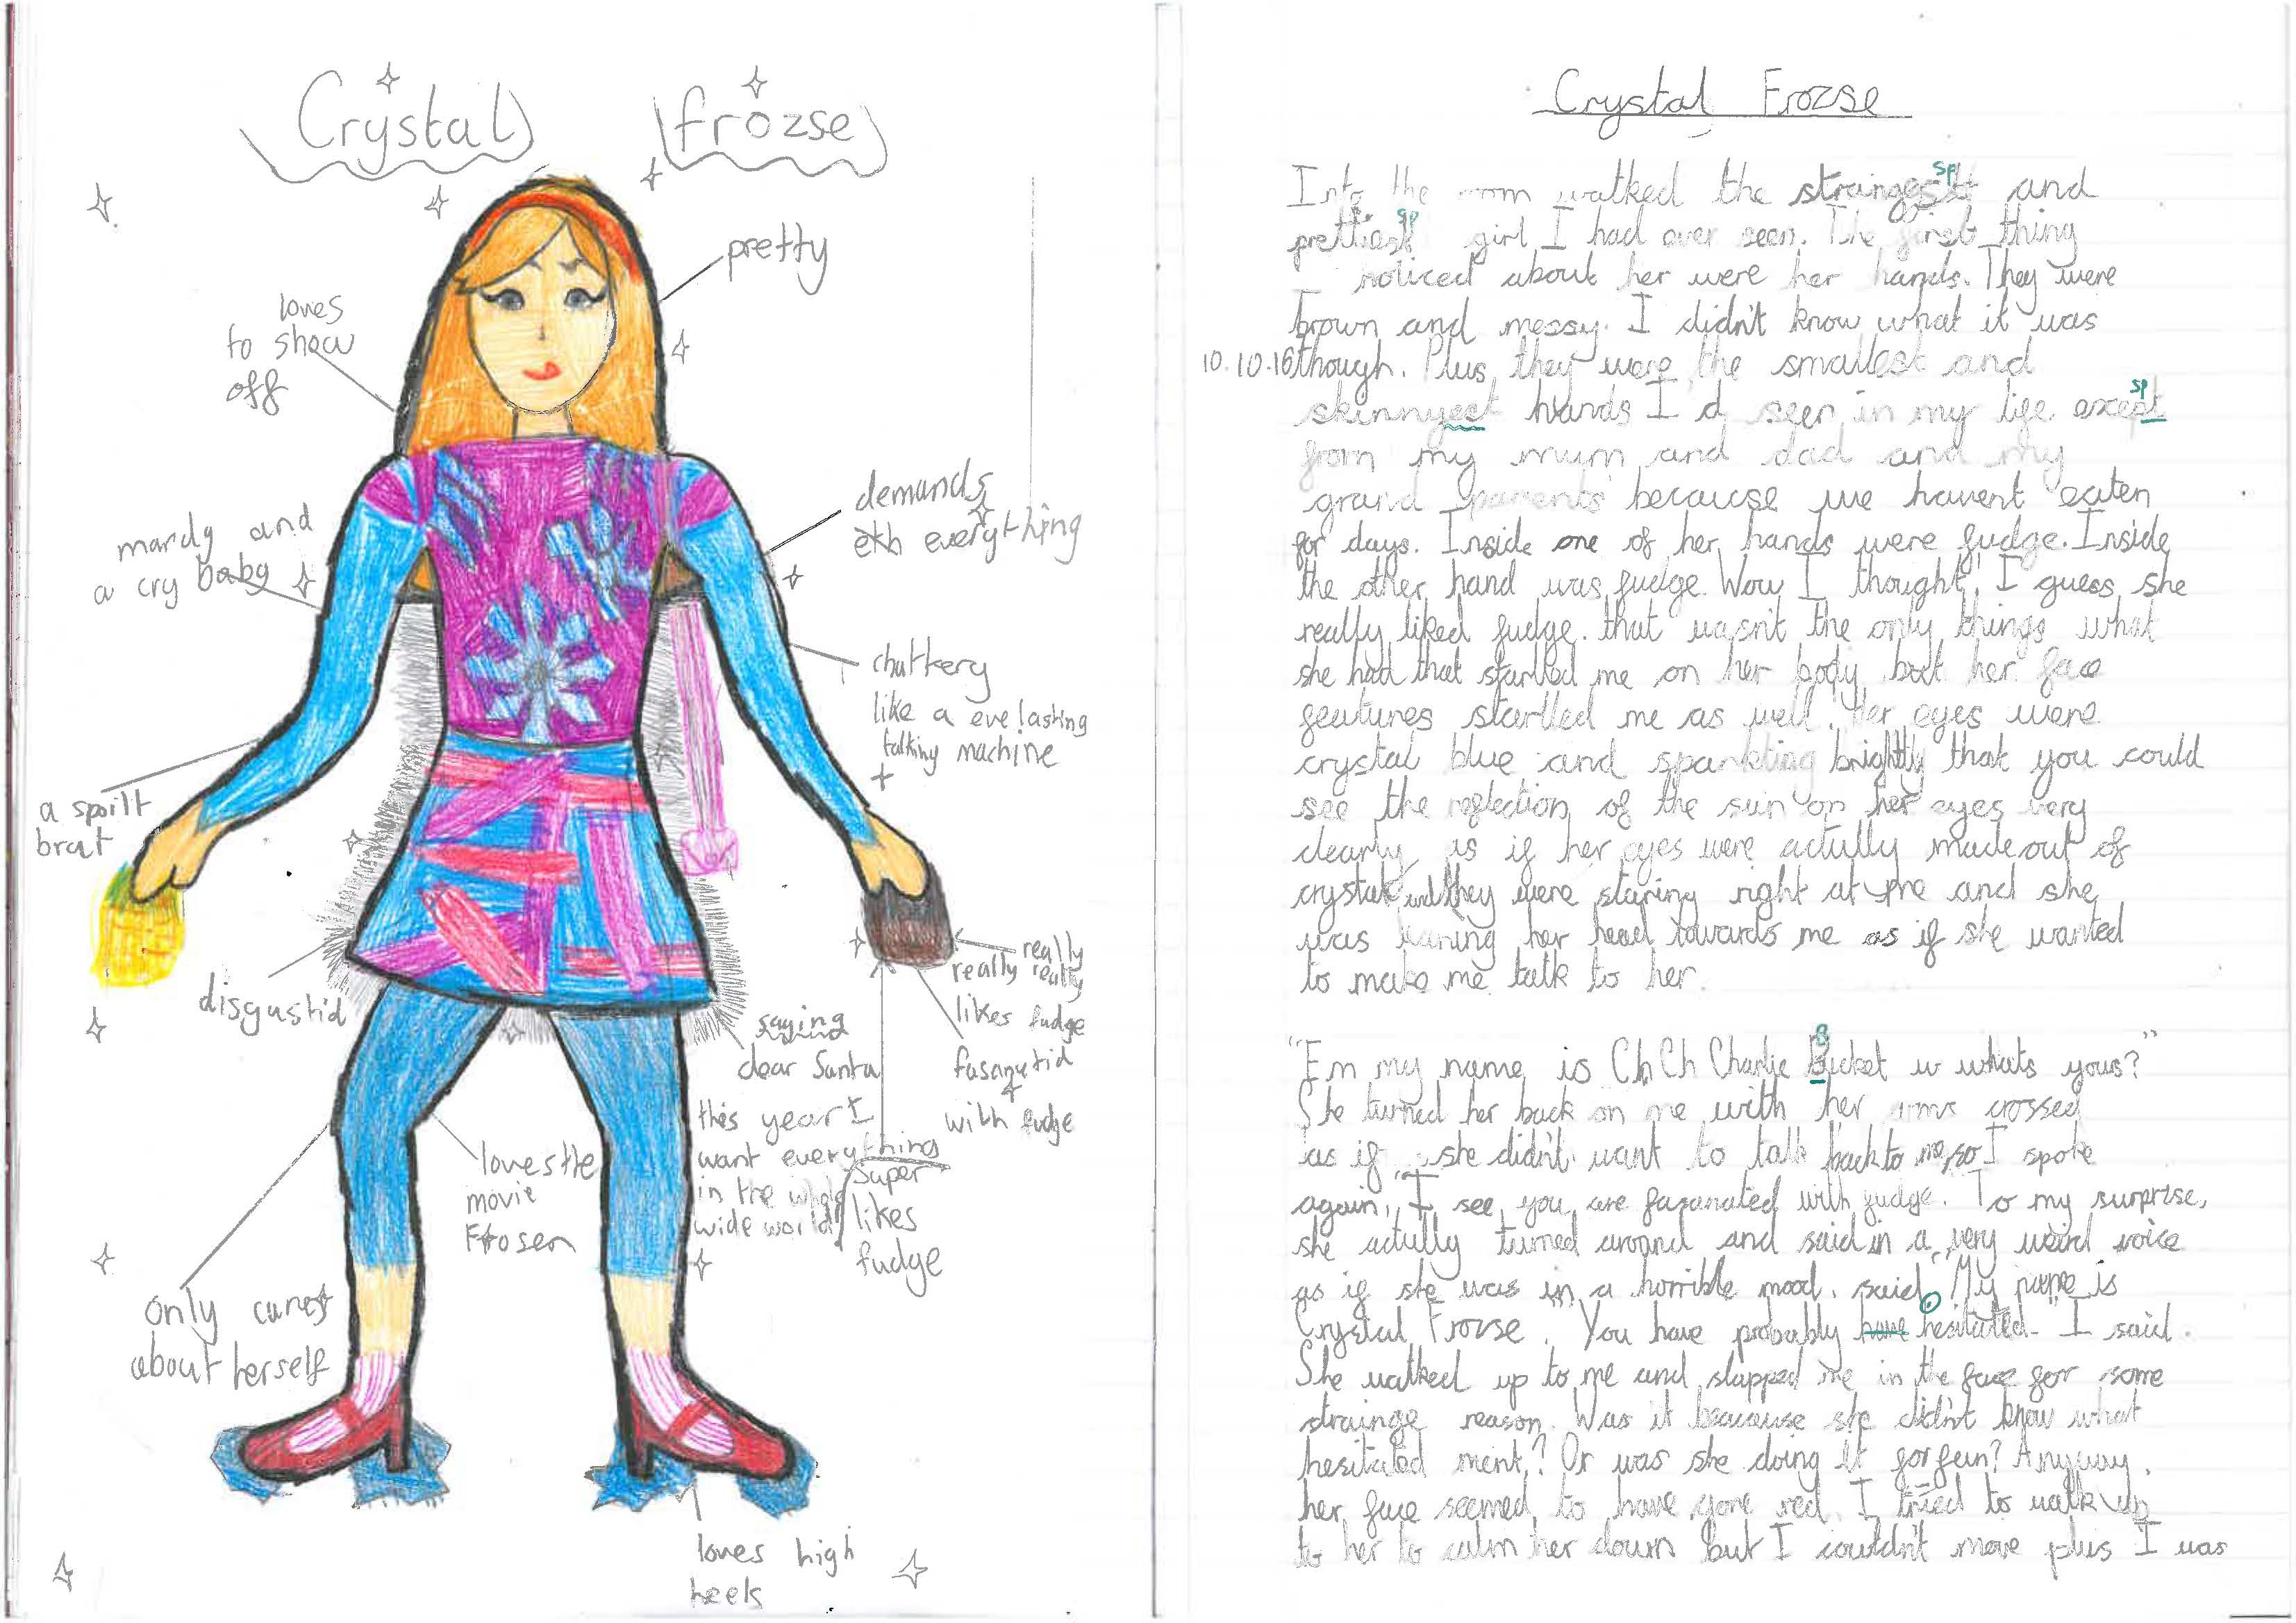 Crystal frozse
pretty
loves
to show
off
demands
eth everything
mardy and
a cry baby
chattery
like a everlasting
talking machine
a spoilt
brat
disgustid
really
really really
likes fudge
fasanatid
with fudge
saying
dear Santa
this year I
want everything
in the whole
wide world
super
likes
fudge
loves the
movie
Frosen
only cares
about herself
loves high
heels
Crystal Frozse
sp
Into the room walked the strainges and
sp
prettiest girl I had ever seen. The first thing
I noticed about her were her hands. They were
brown and messy. I didn't know what it was
10.10.16 though. Plus they were the smallest and
sp
skinnyest hands I'd seen in my life except
from my mum and dad and my
grand parents because we havent eaten
for days. Inside one of her hands were fudge. Inside
the other hand was fudge. Wow I thought, I guess she
really liked fudge. that wasn't the only things what
she had that startled me on her body but her face
features startled me as well. Her eyes were
crystal blue and sparkling brightly that you could
see the reflection of the sun on her eyes very
clearly as if her eyes were actully made out of
crystal and they were staring right at me and she
was leaning her head towards me as if she wanted
to make me talk to her.
B
"Em my name is Ch Ch Charlie Bucket w whats yours?"
She turned her back on me with her arms crossed
as if she didn't want to talk back to me, so I spoke
again, "I see you are fasanated with fudge. To my surprise,
she actully turned around and said in a very weird voice
as if she was in a horrible mood. said, "My name is
Crystal Frozse. "You have probably have hesitated." I said.
She walked up to me and slapped me in the face for some
strainge reason. Was it because she didn't know what
hesitated ment? Or was she doing it for fun? Anyway,
her face seemed to have gone red. I tried to walk up
to her to calm her down but I couldn't move plus I was